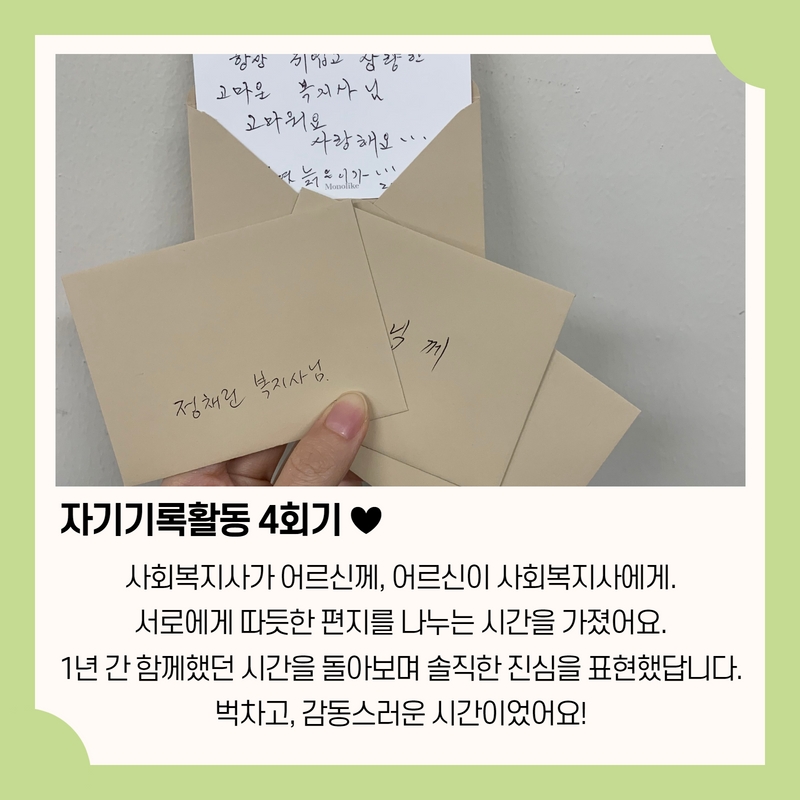 항상 귀엽고 상량한
고마운 복지사 님
고마워요
사랑해요...
늙은이가
Monolike
님 께
정채린 복지사님.
자기기록활동 4회기 ♥
사회복지사가 어르신께, 어르신이 사회복지사에게.
서로에게 따듯한 편지를 나누는 시간을 가졌어요.
1년 간 함께했던 시간을 돌아보며 솔직한 진심을 표현했답니다.
벅차고, 감동스러운 시간이었어요!